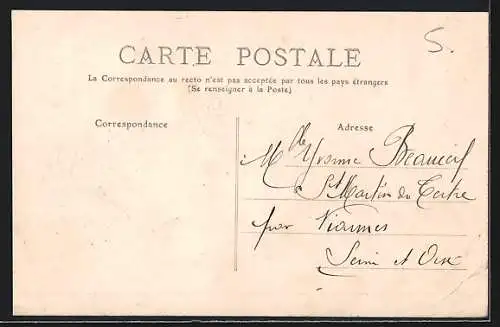 5.
CARTE POSTALE
La Correspondance au recto n'est pas acceptée par tous les pays étrangers
(Se renseigner à la Poste)
Correspondance
Adresse
Mlle Yvonne
à St Martin du Tertre
par Viarmes
Seine et Oise